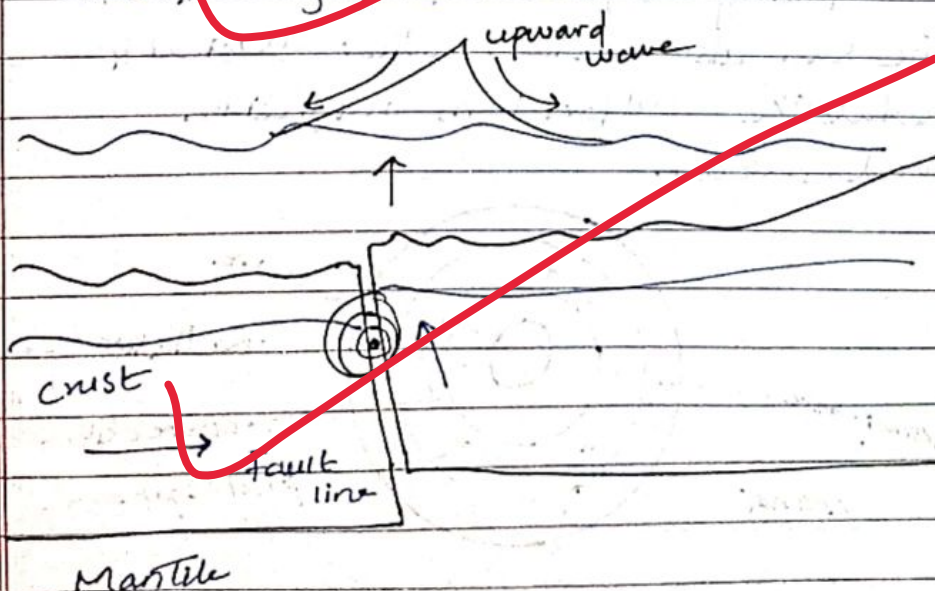 upward
wave
crust
fault
line
Mantle